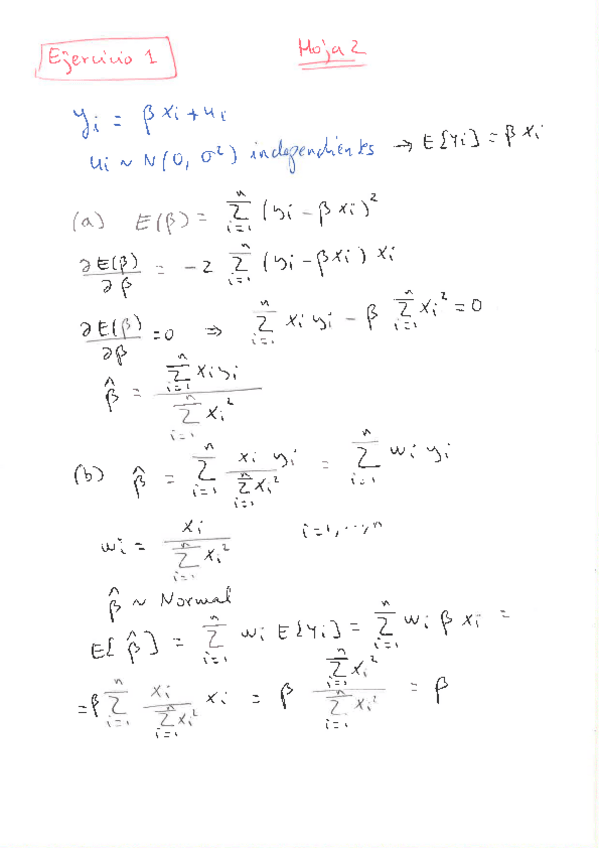 Ejercicio 1
Hoja 2
yᵢ = β xᵢ + uᵢ
uᵢ ~ N(0, σ²) independientes → E[Yᵢ] = β xᵢ
(a) E(β) = Σᵢ₌₁ⁿ (yᵢ - β xᵢ)²
∂E(β)/∂β = -2 Σᵢ₌₁ⁿ (yᵢ - βxᵢ) xᵢ
∂E(β)/∂β = 0 ⇒ Σᵢ₌₁ⁿ xᵢ yᵢ - β Σᵢ₌₁ⁿ xᵢ² = 0
β̂ = Σᵢ₌₁ⁿ xᵢ yᵢ / Σᵢ₌₁ⁿ xᵢ²
(b) β̂ = Σᵢ₌₁ⁿ xᵢ yᵢ / Σᵢ₌₁ⁿ xᵢ² = Σᵢ₌₁ⁿ wᵢ yᵢ
wᵢ = xᵢ / Σᵢ₌₁ⁿ xᵢ² i=1,...,n
β̂ ~ Normal
E[β̂] = Σᵢ₌₁ⁿ wᵢ E[Yᵢ] = Σᵢ₌₁ⁿ wᵢ β xᵢ =
= β Σᵢ₌₁ⁿ xᵢ / Σᵢ₌₁ⁿ xᵢ² xᵢ = β Σᵢ₌₁ⁿ xᵢ² / Σᵢ₌₁ⁿ xᵢ² = β